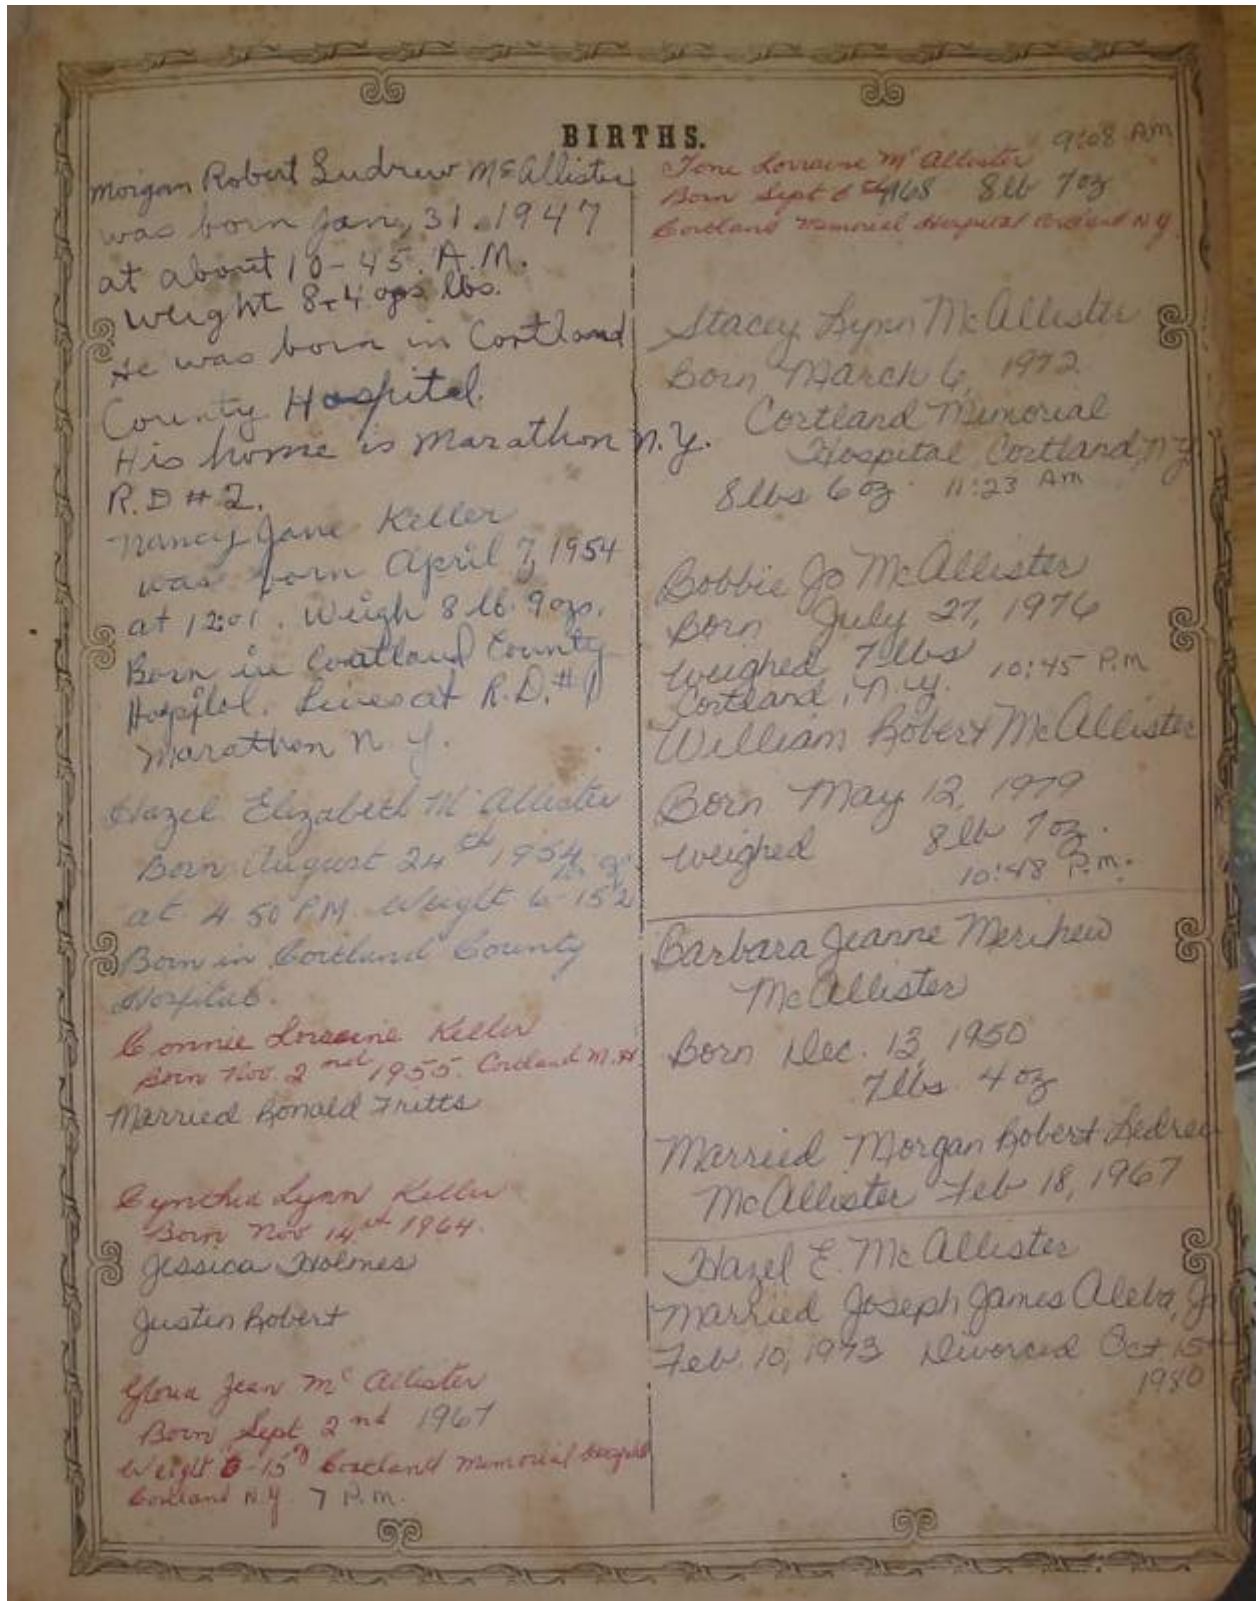 BIRTHS.
Morgan Robert Ludrew McAllister
was born Jan, 31. 1947
at about 10-45. A.M.
Weight 8-4 ozs lbs.
He was born in Cortland
County Hospital.
His home is Marathon N.Y.
R.D # 2.
Nancy Jane Keller
was born April 7, 1954
at 12:01. Weigh 8 lb. 9 ozs.
Born in Cortland County
Hospital. Lives at R.D. #1
Marathon N.Y.
Hazel Elizabeth McAllister
Born August 24th 1954
at 4 50 P.M. Weight 6-15
Born in Cortland County
Hospital.
Connie Lorraine Keller
Born Nov. 2nd 1955. Cortland M.H
Married Ronald Fritts
Cynthia Lynn Keller
Born Nov 14th 1964.
Jessica Holmes
Justin Robert
Gloria Jean McAllister
Born Sept 2nd 1967
Weight 6-15 Cortland Memorial Hospital
Cortland N.Y. 7 P.M.
9:08 AM
Lorraine McAllister
Born Sept 6th 1968 8 lb 7 oz
Cortland Memorial Hospital Cortland N.Y.
Stacey Lynn McAllister
Born March 6, 1972
Cortland Memorial
Hospital, Cortland, NY
8 lbs 6 oz. 11:23 AM
Bobbie Jo McAllister
Born July 27, 1976
Weighed 7 lbs 10:45 P.M
Cortland, N.Y.
William Robert McAllister
Born May 12, 1979
weighed 8 lb 7 oz.
10:48 P.m.
Barbara Jeanne Merihew
McAllister
Born Dec. 13, 1950
7 lbs. 4 oz
Married Morgan Robert Ledrew
McAllister Feb 18, 1967
Hazel E. McAllister
Married Joseph James Aleba, Jr
Feb. 10, 1973 Divorced Oct 15
1980